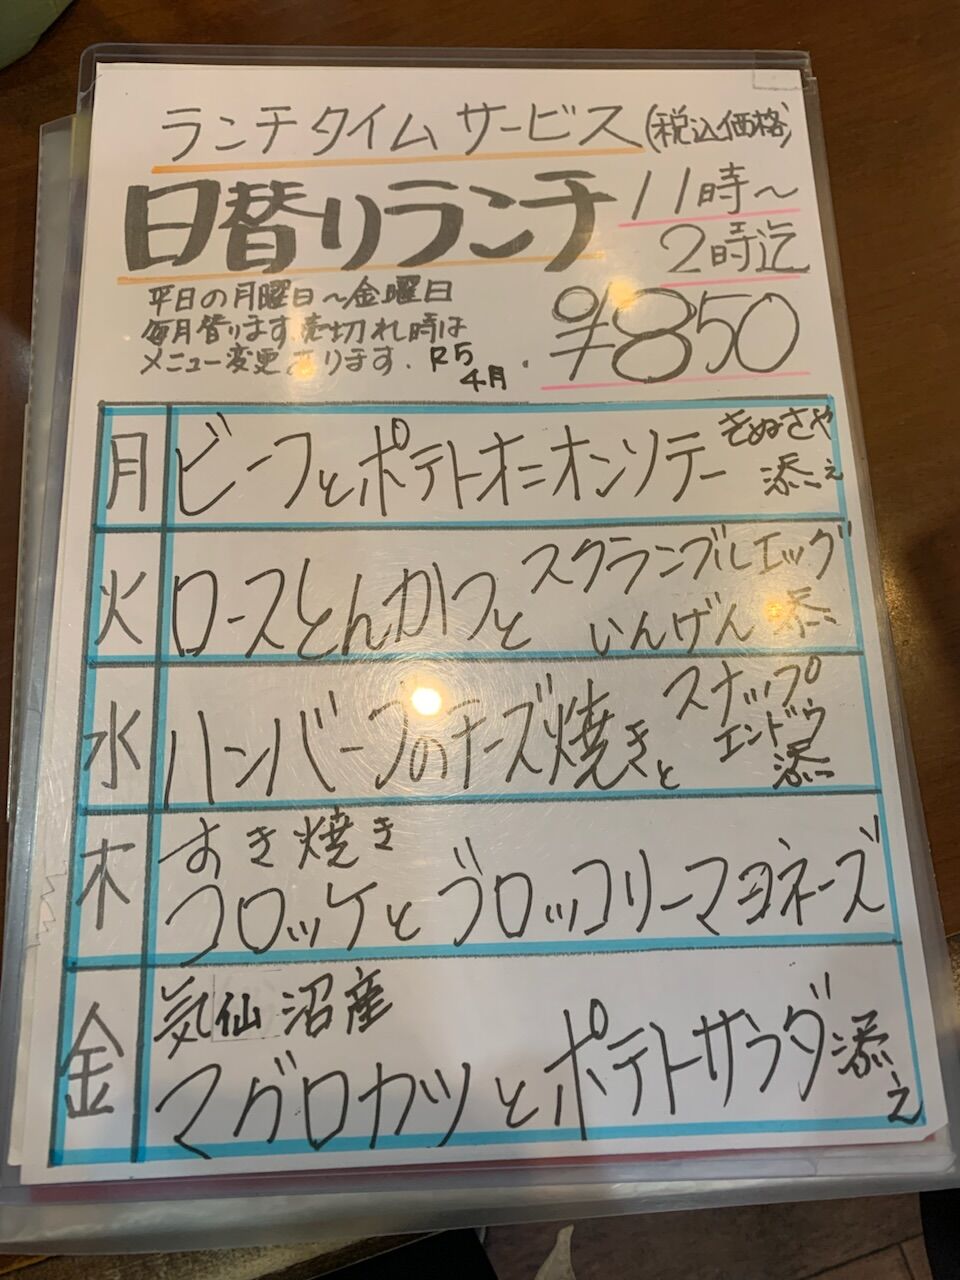 ランチタイムサービス(税込価格)
日替りランチ
11時〜
2時迄
平日の月曜日〜金曜日
毎月替ります.売切れ時は
メニュー変更あります. R5
4月.
¥850
月
ビーフとポテトオニオンソテー
きぬさや
添え
火
ロースとんかつと
スクランブルエッグ
いんげん添
水
ハンバーグのチーズ焼きと
スナップ
エンドウ
添
木
すき焼き
コロッケとブロッコリーマヨネーズ
金
気仙沼産
マグロカツとポテトサラダ添え